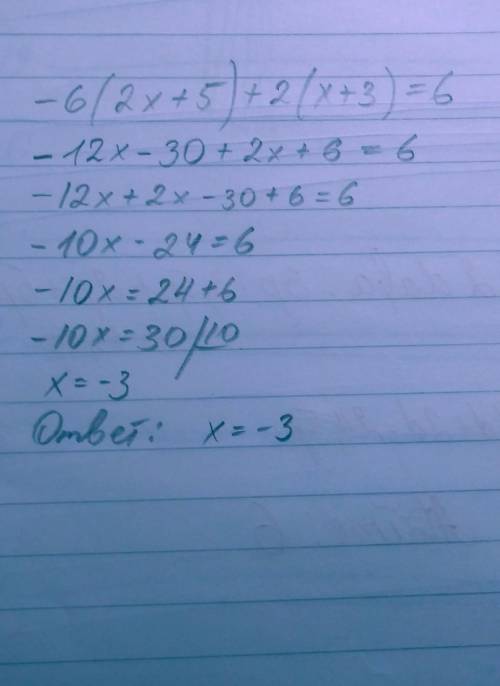 -6(2x+5)+2(x+3)=6
-12x-30+2x+6=6
-12x+2x-30+6=6
-10x-24=6
-10x=24+6
-10x=30/10
x=-3
Ответ: x=-3